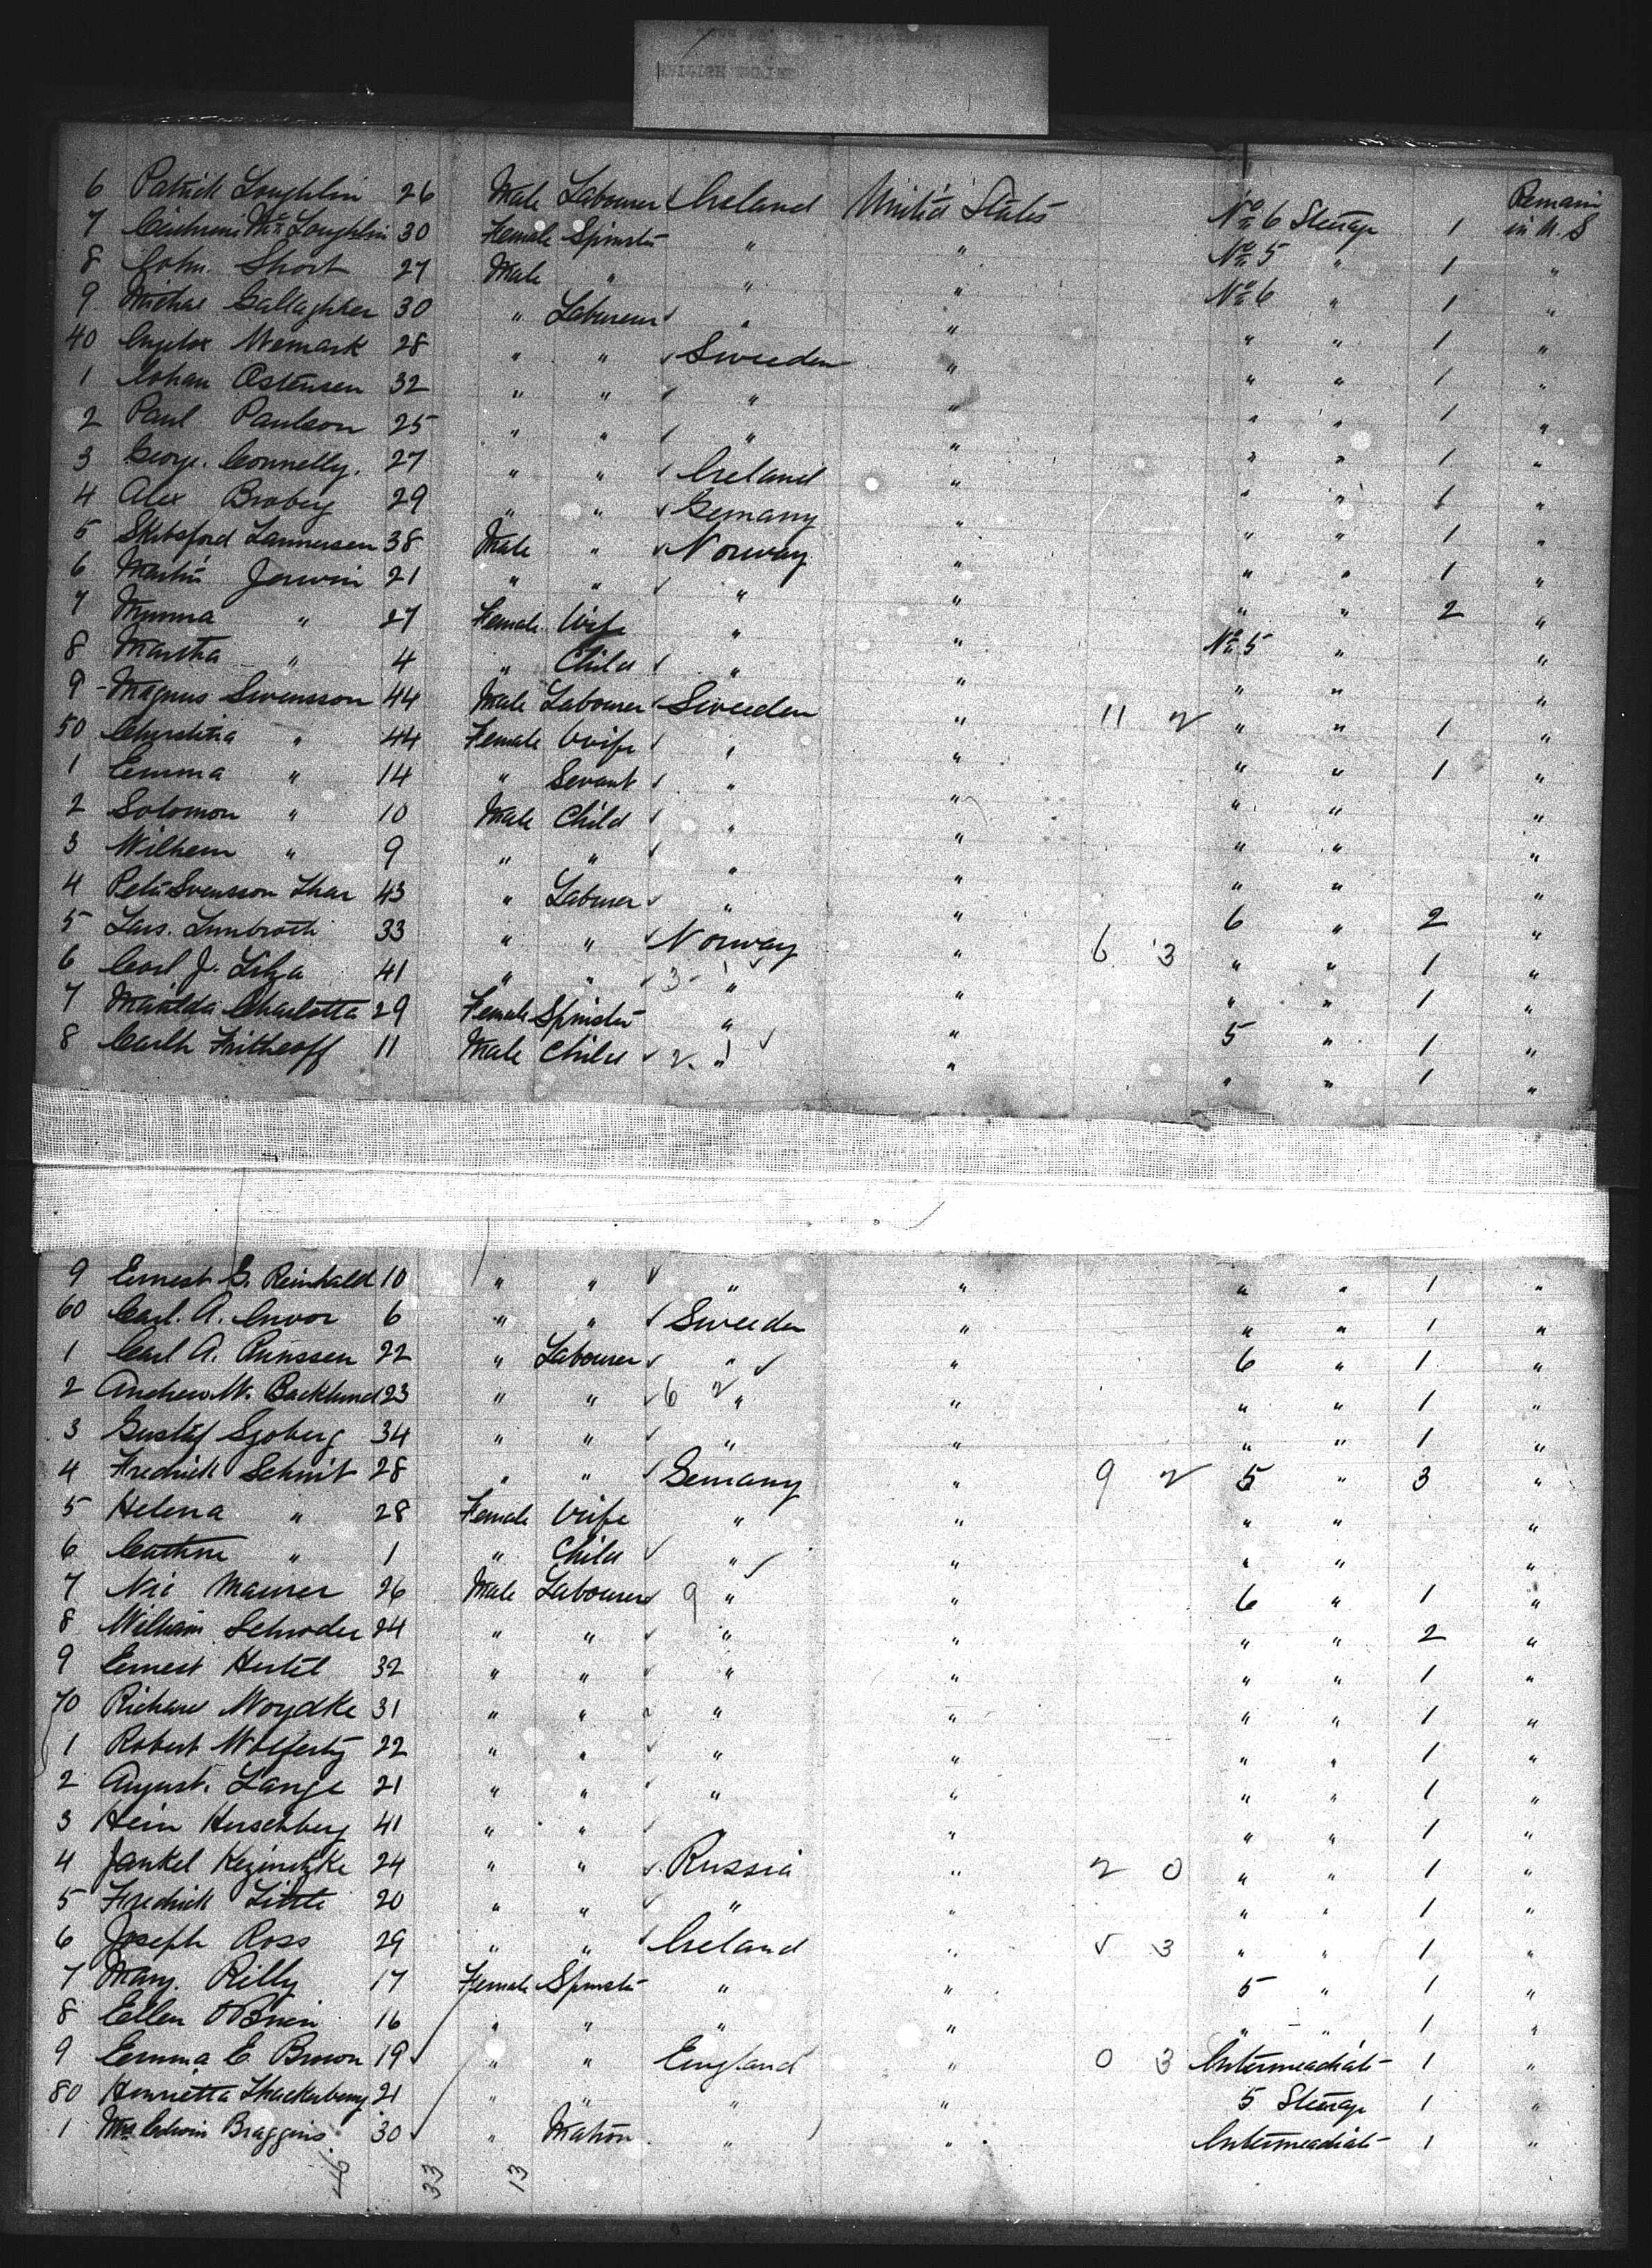 Remain
6 Patrick Loughlin 26 Male Labourer Ireland United States No 6 Steerage 1 in U.S
7 McLoughlin 30 Female Spinster " " No 5 " 1 "
8 John. Short 27 Male " " " No 6 " 1 "
9 Michal Gallaghher 30 " Labourer " " " " 1 "
40 28 " " Sweeden " " " 1 "
1 Johan Ostensen 32 " " " " " " 1 "
2 Paul Paulson 25 " " " " " " 1 "
3 George. Connelly. 27 " " Ireland " " " 1 "
4 Alex Broberg 29 " " Gemany " " " 1 "
5 38 Male " Norway " " " 1 "
6 Martin Jerwin 21 " " " " " " 2 "
7 Mumma " 27 Female Wife " " No 5 " "
8 Martha " 4 " Child " " " " "
9 Magnus Swensson 44 Male Labourer Sweeden " 11 2 " " 1 "
50 " 44 Female Wife " " " " 1 "
1 Emma " 14 " Servant " " " " "
2 Solomon " 10 Male Child " " " " "
3 Wilhem " 9 " " " " " " "
4 Peter Svensson Thar 43 " Labourer " " 6 " 2 "
5 Lars. 33 " " Norway " 6 3 " " 1 "
6 Carl J. Lilja 41 " " 3 1 " " " " 1 "
7 Matilda Charlotta 29 Female Spinster " " 5 " 1 "
8 Carlh Fritheoff 11 Male Child 2 1 " " " " 1 "
9 Ernest G. Reinhald 10 " " " " " " 1 "
60 Carl. A. 6 " " Sweeden " " " 1 "
1 Carl A. Runssen 22 " Labourer " " 6 " 1 "
2 Andrew W. Backlund 23 " " 6 2 " " " " 1 "
3 Gustaf Sjoberg 34 " " " " " " 1 "
4 Fredrick Schmit 28 " " Gemany " 9 2 5 " 3 "
5 Helena " 28 Female Wife " " " " "
6 Cathne " 1 " Child " " " " "
7 Nic Maurer 26 Male Labourer 9 " " 6 " 1 "
8 William Schroder 24 " " " " " " 2 "
9 Ernest Hertel 32 " " " " " " 1 "
70 Richard Woydke 31 " " " " " " 1 "
1 Robert 22 " " " " " " 1 "
2 August. Lange 21 " " " " " " 1 "
3 Hein Herschberg 41 " " " " " " 1 "
4 Jankel 24 " " Russia " 2 0 " " 1 "
5 Fredrick Little 20 " " " " " " 1 "
6 Joseph Ross 29 " " Ireland " 5 3 " " 1 "
7 Mary. Rilly 17 Female Spinster " " 5 " 1 "
8 Ellen O'Brien 16 " " " " " " 1 "
9 Emma E. Brown 19 " " England " 0 3 Intermeadiate 1 "
80 Henrietta Thackerberry 21 " " " " 5 Steerage 1 "
1 Mrs Edwin Braggins 30 " Matron " " Intermeadiate 1 "
46 33 13